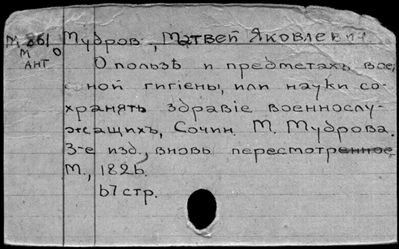 М 861 Мудров, Матвей Яковлевич
М О
АНТ О пользѣ и предметахъ вое
ной гигіены, или науки со-
хранять здравіе военнослу-
жащихъ, Сочин. М. Мудрова.
3-е изд., вновь пересмотренное
М., 1826.
67 стр.